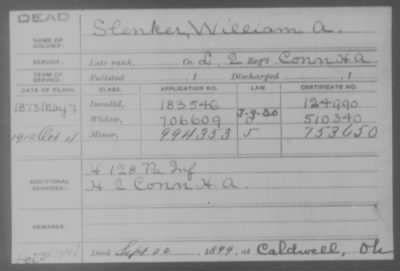 DEAD
NAME OF SOLDIER: Slenker, William A.
SERVICE: Late rank, Co. L, 2 Reg't Conn H.A.
TERM OF SERVICE: Enlisted , 1 Discharged , 1
DATE OF FILING. CLASS. APPLICATION NO. LAW. CERTIFICATE NO.
1873 May 7 Invalid, 183546 124990
Widow, 706609 J-9-30 510340
Oct 4 Minor, 994353 753650
ADDITIONAL SERVICES: H 128 Pa Inf
H 2 Conn H.A.
REMARKS:
Died Sept 22, 1899, at Caldwell, Ok